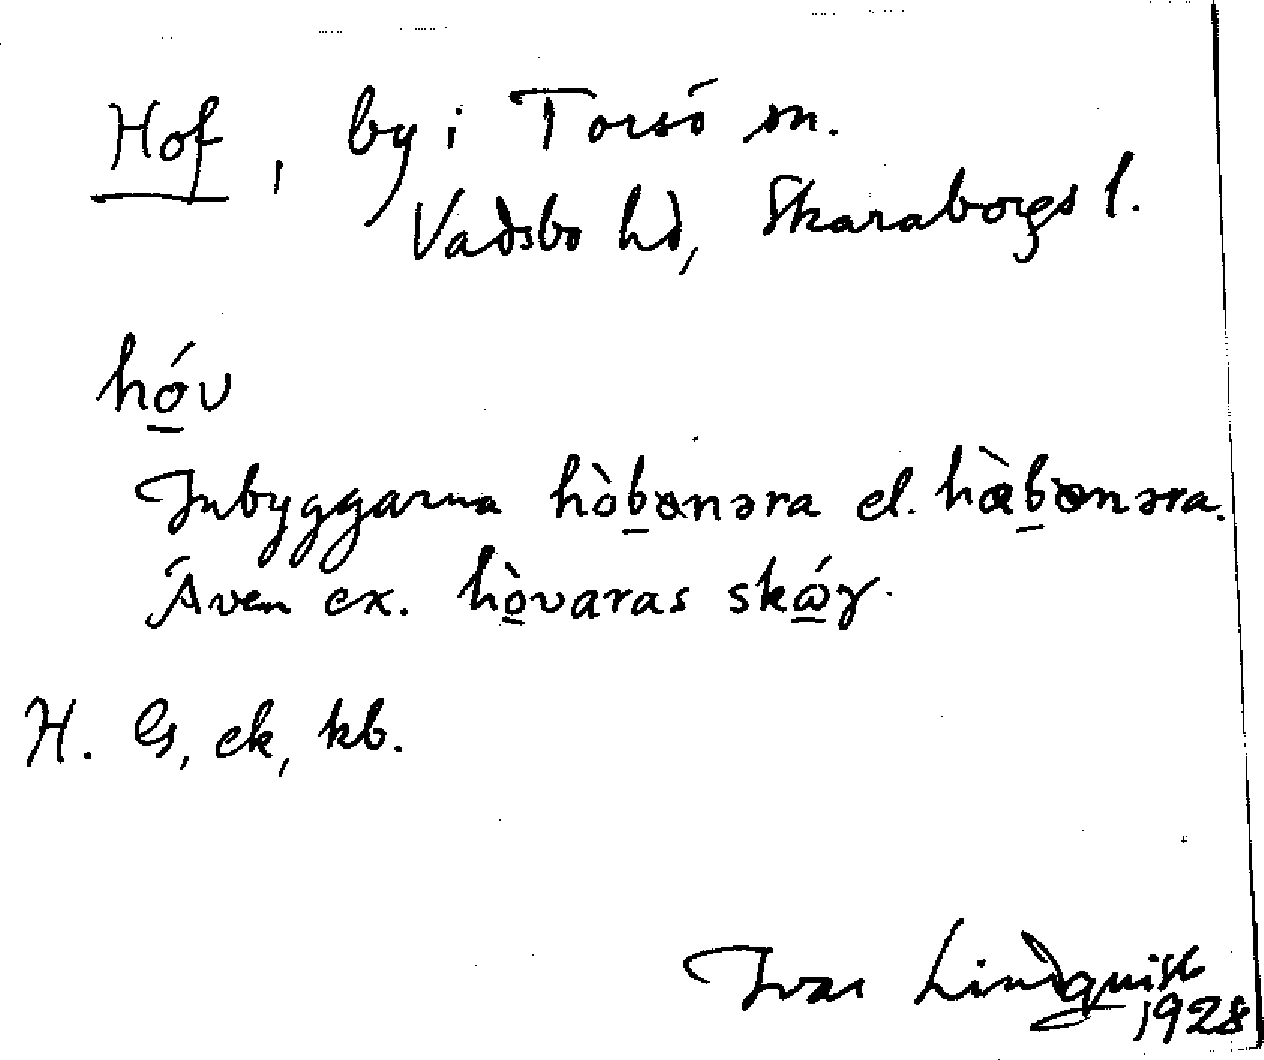 Hof, by i Torsö sn.
Vadsbo hd, Skaraborgs l.
hó̲v
Inbyggarna hòb̲ɷnəra el. hàb̲ɷnəra.
Även ex. hò̲varas skɷ̲́γ.
H. G, ek, kb.
Ivar Lindquist
1928